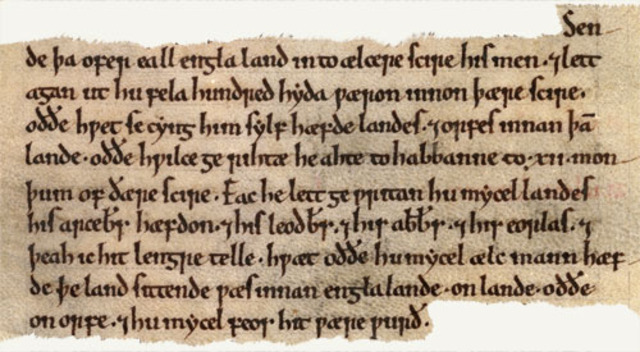 Sen
de þa ofer eall engla land into ælcere scire his men. ⁊ lett
agan ut hu fela hundred hyda wæron innon þære scire.
oððe hwet se cyng him sylf hæfde landes. ⁊ orfes innan þā
lande. oððe hwilce gerihtæ he ahte to habbanne to. xii. mon
þum of ðære scire. Eac he lett gewritan hu mycel landes
his arceb̄r hæfdon. ⁊ his leodb̄r. ⁊ hir abb̄r. ⁊ hir eorlas. ⁊
þeah ic hit lengre telle. hwæt oððe hu mycel ælc mann hæf
de þe land sittende wæs innan englalande. on lande. oððe
on orfe. ⁊ hu mycel feor hit wære wurð.